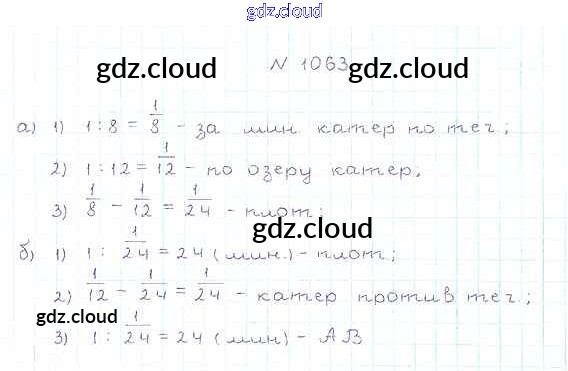 gdz.cloud
gdz.cloud N 1063 gdz.cloud
а) 1) 1 : 8 = 1/8 - за мин. катер по теч.;
2) 1 : 12 = 1/12 - по озеру катер;
3) 1/8 - 1/12 = 1/24 - плот;
gdz.cloud
б) 1) 1 : 1/24 = 24 (мин.) - плот.;
2) 1/12 - 1/24 = 1/24 - катер против теч.;
gdz.cloud
3) 1 : 1/24 = 24 (мин) - АВ